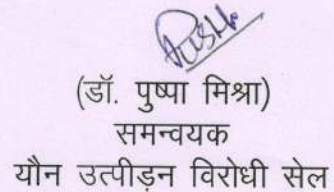 (डॉ. पुष्पा मिश्रा)
समन्वयक
यौन उत्पीड़न विरोधी सेल